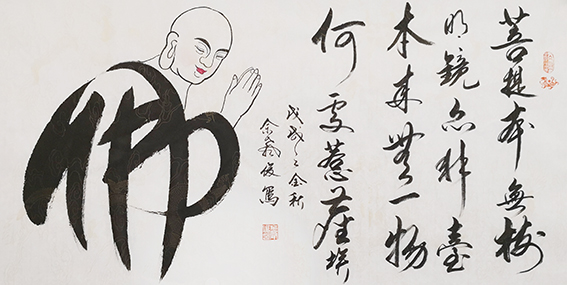 菩提本無樹
明鏡亦非臺
本來無一物
何處惹塵埃
戊戌金秋
佛